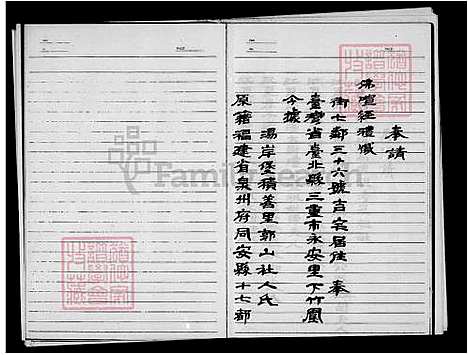 奉請
佛宣經禮懺
街七鄰三十六號吉宅居住 奉
臺灣省臺北縣三重市永安里下竹圍
今據
湯岸堡積善里郭山社人氏
原籍福建省泉州府同安縣十七都
FamilySearch